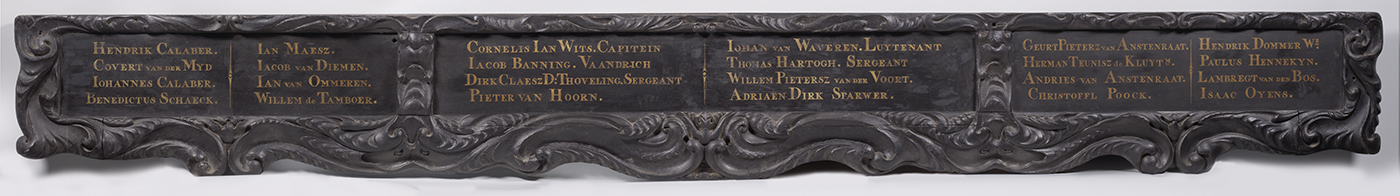 HENDRIK CALABER.
COVERT VAN DER MYD
IOHANNES CALABER.
BENEDICTUS SCHAECK.
IAN MAESZ.
IACOB VAN DIEMEN.
IAN VAN OMMEREN.
WILLEM de TAMBOER.
CORNELIS IAN WITS. CAPITEIN
IACOB BANNING. VAANDRICH
DIRK CLAESZ D: THOVELING. SERGEANT
PIETER VAN HOORN.
IOHAN VAN WAVEREN. LUYTENANT
THOMAS HARTOGH. SERGEANT
WILLEM PIETERSZ VAN DER VOORT.
ADRIAEN DIRK SPARWER.
GEURT PIETERZ VAN ANSTENRAAT.
HERMAN TEUNISZ de KLUYTR.
ANDRIES VAN ANSTENRAAT.
CHRISTOFFL POOCK.
HENDRIK DOMMER WZ.
PAULUS HENNEKYN.
LAMBREGT VAN DEN BOS.
ISAAC OYENS.